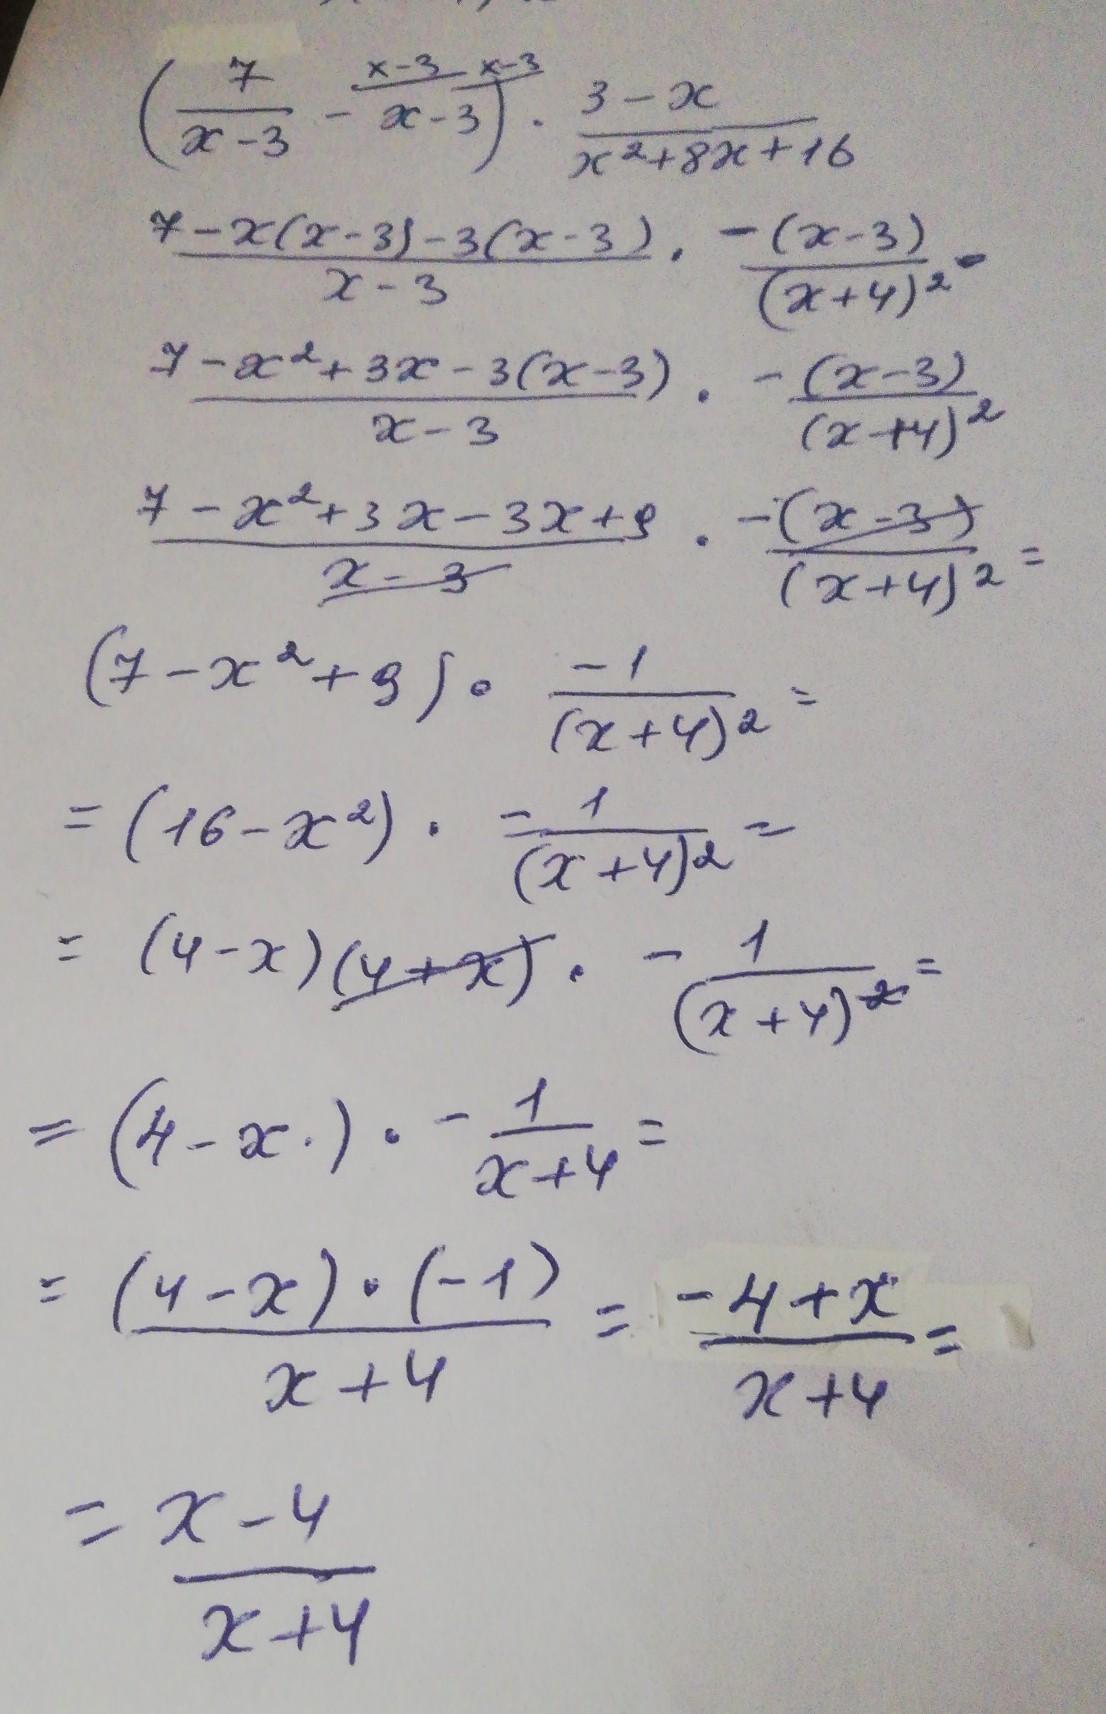 (7/(x-3) - x-3) · (3-x)/(x²+8x+16)
(7-x(x-3)-3(x-3))/(x-3) · -(x-3)/(x+4)² =
(7-x²+3x-3(x-3))/(x-3) · -(x-3)/(x+4)²
(7-x²+3x-3x+9)/(x-3) · -(x-3)/(x+4)² =
(7-x²+9) · -1/(x+4)² =
= (16-x²) · -1/(x+4)² =
= (4-x)(4+x) · -1/(x+4)² =
= (4-x) · -1/(x+4) =
= (4-x)·(-1)/(x+4) = (-4+x)/(x+4) =
= (x-4)/(x+4)